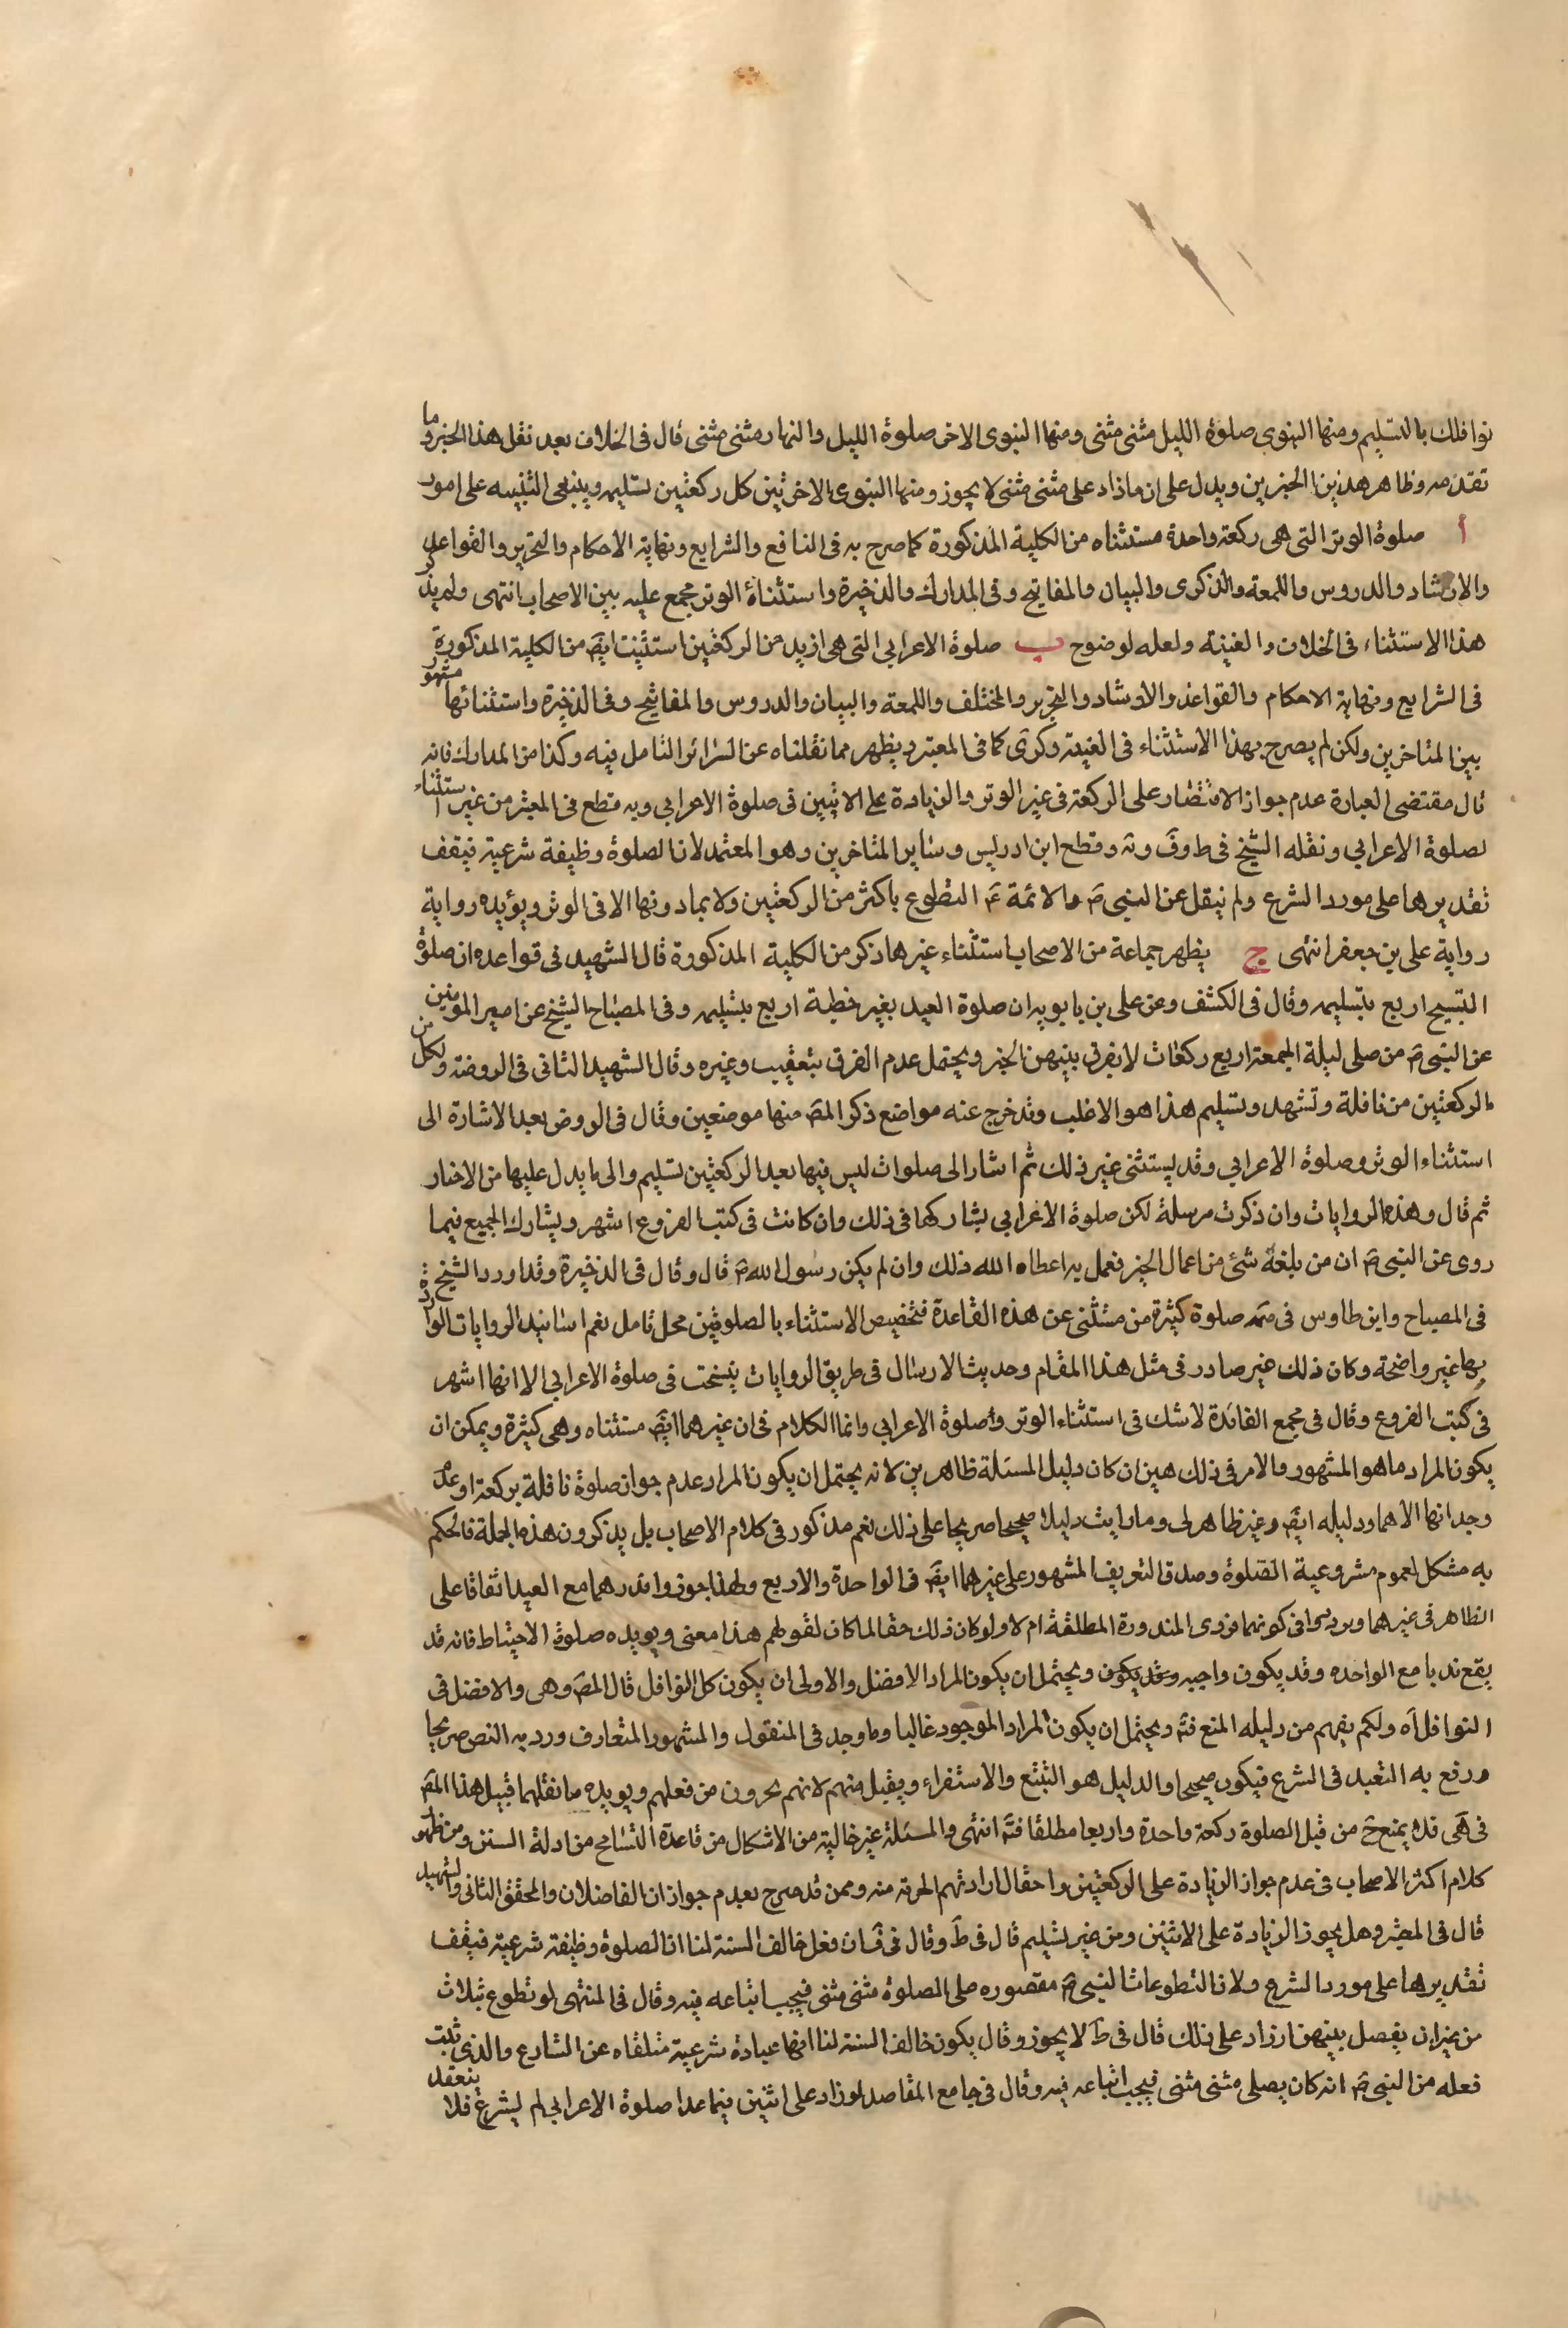 نوافلك بالتسليم ومنها النبوى صلوة الليل مثنى مثنى ومنها النبوى الاخر صلوة الليل والنهار مثنى مثنى قال فى الخلاف بعد نقل هذا الخبر وما
تقدمه وظاهر هذين الخبرين ويدل على ان ما زاد على مثنى مثنى لا يجوز ومنها النبوى الاخر بين كل ركعتين تسليمه وينبغى التنبيه على امور
أ صلوة الوتر التى هى ركعة واحدة مستثناه من الكلية المذكورة كما صرح به فى النافع والشرايع ونهاية الاحكام والتحرير والقواعد
والارشاد والدروس واللمعة والذكرى والبيان والمفاتيح وفى المدارك والذخيرة واستثناء الوتر مجمع عليه بين الاصحاب انتهى ولم يذكر
هذا الاستثناء فى الخلاف والغنية ولعله لوضوح ب صلوة الاعرابي التى هى ازيد من الركعتين استثنيت ايضَ من الكلية المذكورة
فى الشرايع ونهاية الاحكام والقواعد والارشاد والتحرير والمختلف واللمعة والبيان والدروس والمفاتيح وفى الذخيرة واستثنائها مشهور
بين المتاخرين ولكن لم يصرح بهذا الاستثناء فى الغنية وكرى كما فى المعتبر ويظهر مما نقلناه عن السرائر التامل فيه وكذا من المدارك فانه
قال مقتضى العبارة عدم جواز الاقتصار على الركعة فى غير الوتر والزيادة على الاثنين فى صلوة الاعرابي وبه قطع فى المعتبر من غير استثناء
لصلوة الاعرابي ونقله الشيخ فى ط وفَ ونه وقطع ابن ادريس وساير المتاخرين وهو المعتمد لان الصلوة وظيفة شرعية فيقف
تقديرها على مورد الشرع ولم ينقل عن النبى صَ والائمة عَ التطوع باكثر من الركعتين ولا بمادونها الا فى الوتر ويؤيده رواية
رواية على بن جعفر انتهى ج يظهر جماعة من الاصحاب استثناء غير ما ذكر من الكلية المذكورة قال الشهيد فى قواعده ان صلوة
التسبيح اربع بتسليمه وقال فى الكشف وعن على بن بابويه ان صلوة العيد بغير خطبة اربع بتسليمه وفى المصباح الشيخ عن امير المومنين
عن النبى صَ من صلى ليلة الجمعة اربع ركعات لا يفرق بينهن الخبر ويحتمل عدم الفرق بتعقيب وغيره وقال الشهيد الثانى فى الروضة ولكل من
الركعتين من نافلة وتشهد وتسليم هذا هو الاغلب وقد خرج عنه مواضع ذكر المصَ منها موضعين وقال فى الروض بعد الاشارة الى
استثناء الوتر وصلوة الاعرابي وقد يستثنى غير ذلك ثم اشار الى صلوات ليس فيها بعد الركعتين تسليم والى ما يدل عليها من الاخبار
ثم قال وهذه الروايات وان ذكرت مرسلة لكن صلوة الاعرابي يشاركها فى ذلك وان كانت فى كتب الفروع اشهر ويشارك الجميع فيما
روى عن النبى صَ ان من بلغه شئ من اعمال الخير فعمل به اعطاه الله ذلك وان لم يكن رسول الله صَ قال وقال فى الذخيرة وقد اورد الشيخ
فى المصباح وابن طاوس فى تتمه صلوة كثيرة من مستثنى عن هذه القاعدة فتخصيص الاستثناء بالصلوتين محل تامل نعم اسانيد الروايات الواردة
بها غير واضحة وكان ذلك غير صادر فى مثل هذا المقام وحديث الارسال فى طريق الروايات يتسحب فى صلوة الاعرابي الا انها اشهر
فى كتب الفروع وقال فى مجمع الفائدة لا شك فى استثناء الوتر وصلوة الاعرابي وانما الكلام فى ان غيرهما ايضَ مستثناه وهى كثيرة ويمكن ان
يكون المراد ما هو المشهور والامر فى ذلك هين ان كان دليل المسئلة ظاهر بن لانه يحتمل ان يكون المراد عدم جواز صلوة نافلة بركعة او عدم
وجدانها الا هما ودليله ايضَ وغير ظاهر لى وما رايت دليلا صحيحا صريحا على ذلك نعم مذكور فى كلام الاصحاب بل يذكرون هذه الجملة فالحكم
به مشكل لعموم مشروعية الصلوة وصدق التعريف المشهور على غيرهما ايضَ فى الواحدة والاربع ولهذا جوزوا نذرهما مع العيد اتفاقا على
الظاهر فى غيرهما وبرديوا فى كونهما فردى المنذورة المطلقة ام لا ولو كان ذلك حقا لما كان لقولهم هذا معنى ويويده صلوة الاحتياط فانه قد
يقع ندبا مع الواحده وقد يكون واجبه وقد يكون ويحتمل ان يكون المراد الافضل والاولى ان يكون كل النوافل قال المصَ وهى والافضل فى
النوافل آه ولكم يفهم من دليله المنع فتَه ويحتمل ان يكون المراد الموجود غالبا وما وجد فى المنقول والمشهور المتعارف ورد به النص صريحا
ورفع به التعبد فى الشرع فيكون صحيحا والدليل هو التتبع والاستقراء ويقبل منهم لانهم يحرون من فعلهم ويويده ما نقلهما قبيل هذا المصَ
فى هَى قده يمنع خَ من قبل الصلوة ركعة واحدة واربعا مطلقا فتَه انتهى والمسئلة غير خالية من الاشكال من قاعدة التسامح من ادلة السنن ومن ظهور
كلام اكثر الاصحاب فى عدم جواز الزيادة على الركعتين واحتمال ارادتهم الحرمة منه وممن قد صرح بعدم جواز ان الفاضلان والمحقق الثانى والشهيد
قال فى المعتبر وهل يجوز الزيادة على الاثنين ومن غير تسليم قال فى طَ وقال فى فَ ان فعل خالف السنة لنا ان الصلوة وظيفة شرعية فيقف
تقديرها على مورد الشرع ولان التطوعات النبى صَ مقصوره على الصلوة مثنى مثنى فيجب اتباعه فيه وقال فى المنتهى لو تطوع بثلاث
من غير ان يفصل بينهن ارزاد على ذلك قال فى طَ لا يجوز وقال يكون خالف السنة لنا انها عبادة شرعية متلقاه عن الشارع والذى ثبت
فعله من النبى صَ انه كان يصلى مثنى مثنى فيجب اتباعه فيه وقال فى جامع المقاصد لو زاد على اثنين فيما عدا صلوة الاعرابي لم يشرع فلا ينعقد